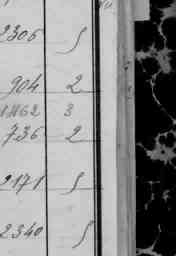 2306 5
904 2
11162 3
736 2
2171 5
2340 5